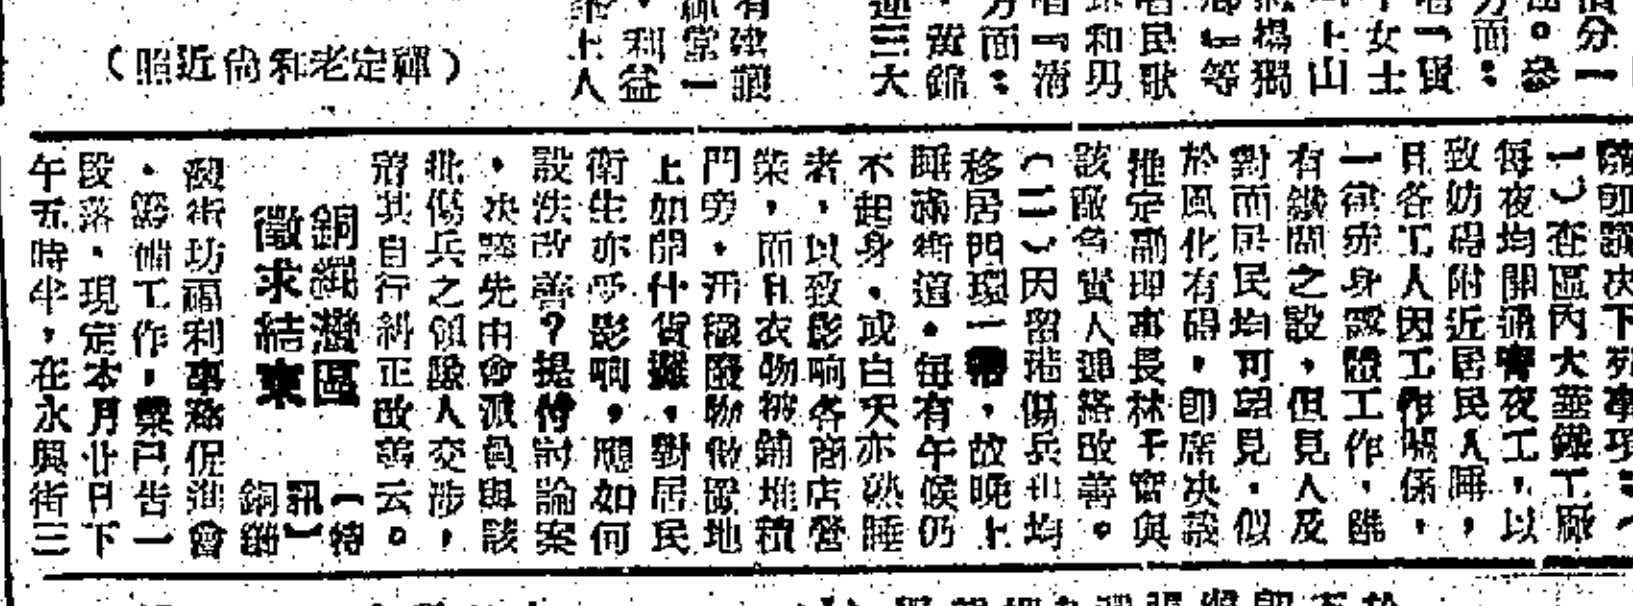 分一
。參
面：
女士
上山
楊獨
』等
民歌
和男
『清
方面：
，黃錦
三大
堂一
，利益
上人
（禪定老和尚近照）
議决下列事項：（
一）在區內大華鐵工廠
每夜均開通宵夜工，以
致妨碍附近居民人睡，
且各工人因工作關係，
一律赤身露體工作，雖
有鐵閘之設，但見人及
對面居民均可望見，似
於風化有碍，即席决議
推定副理事長林千與
該廠負責人連絡改善。
（二）因留港傷兵也均
移居門環一帶，故晚上
睡滿街道。每有午候仍
不起身，或白天亦熟睡
者，以致影响各商店營
業，而且衣物被鋪堆積
門旁，汚穢廢物做留地
上如開什貨攤，對居民
衛生亦受影响，應如何
設法改善？提付討論案
，决議先由會派員與該
批傷兵之領隊人交涉，
將其自行糾正改善云。
銅鑼灣區
徵求結束
【特
訊】
銅鑼
灣街坊福利事務促進會
，籌備工作，業已告一
段落，現定本月廿日下
午五時半，在永興街三